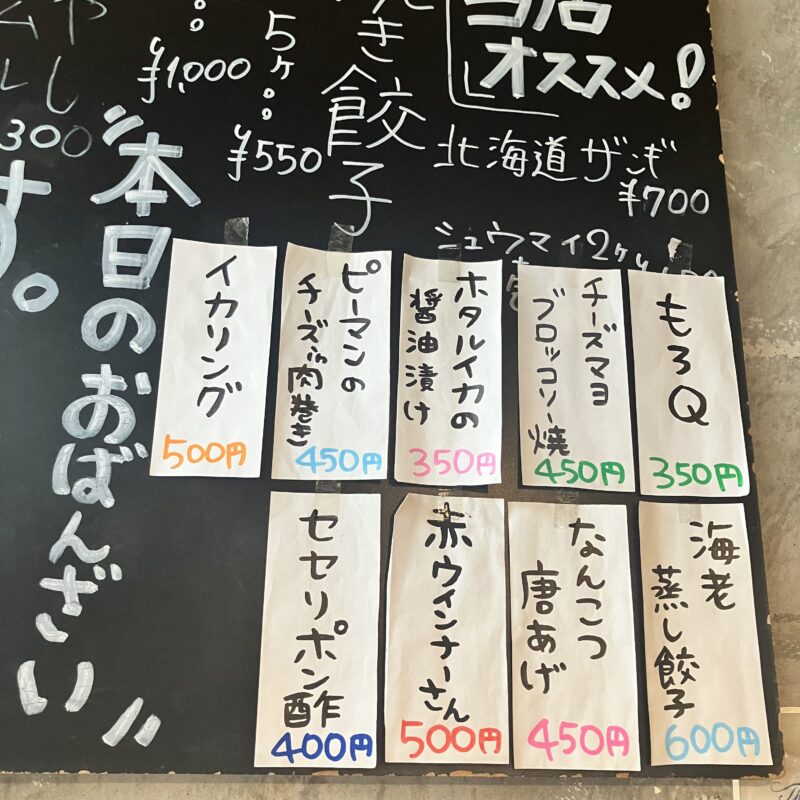 当店
オススメ!
北海道ザンギ
¥700
シュウマイ2ケ
き餃子
5ケ
¥550
¥1,000
300
す。
"本日のおばんざい"
もろQ
350円
チーズマヨ
ブロッコリー焼
450円
ホタルイカの
醤油漬け
350円
ピーマンの
チーズin肉巻き
450円
イカリング
500円
海老
蒸し餃子
600円
なんこつ
唐あげ
450円
赤ウインナーさん
500円
セセリポン酢
400円